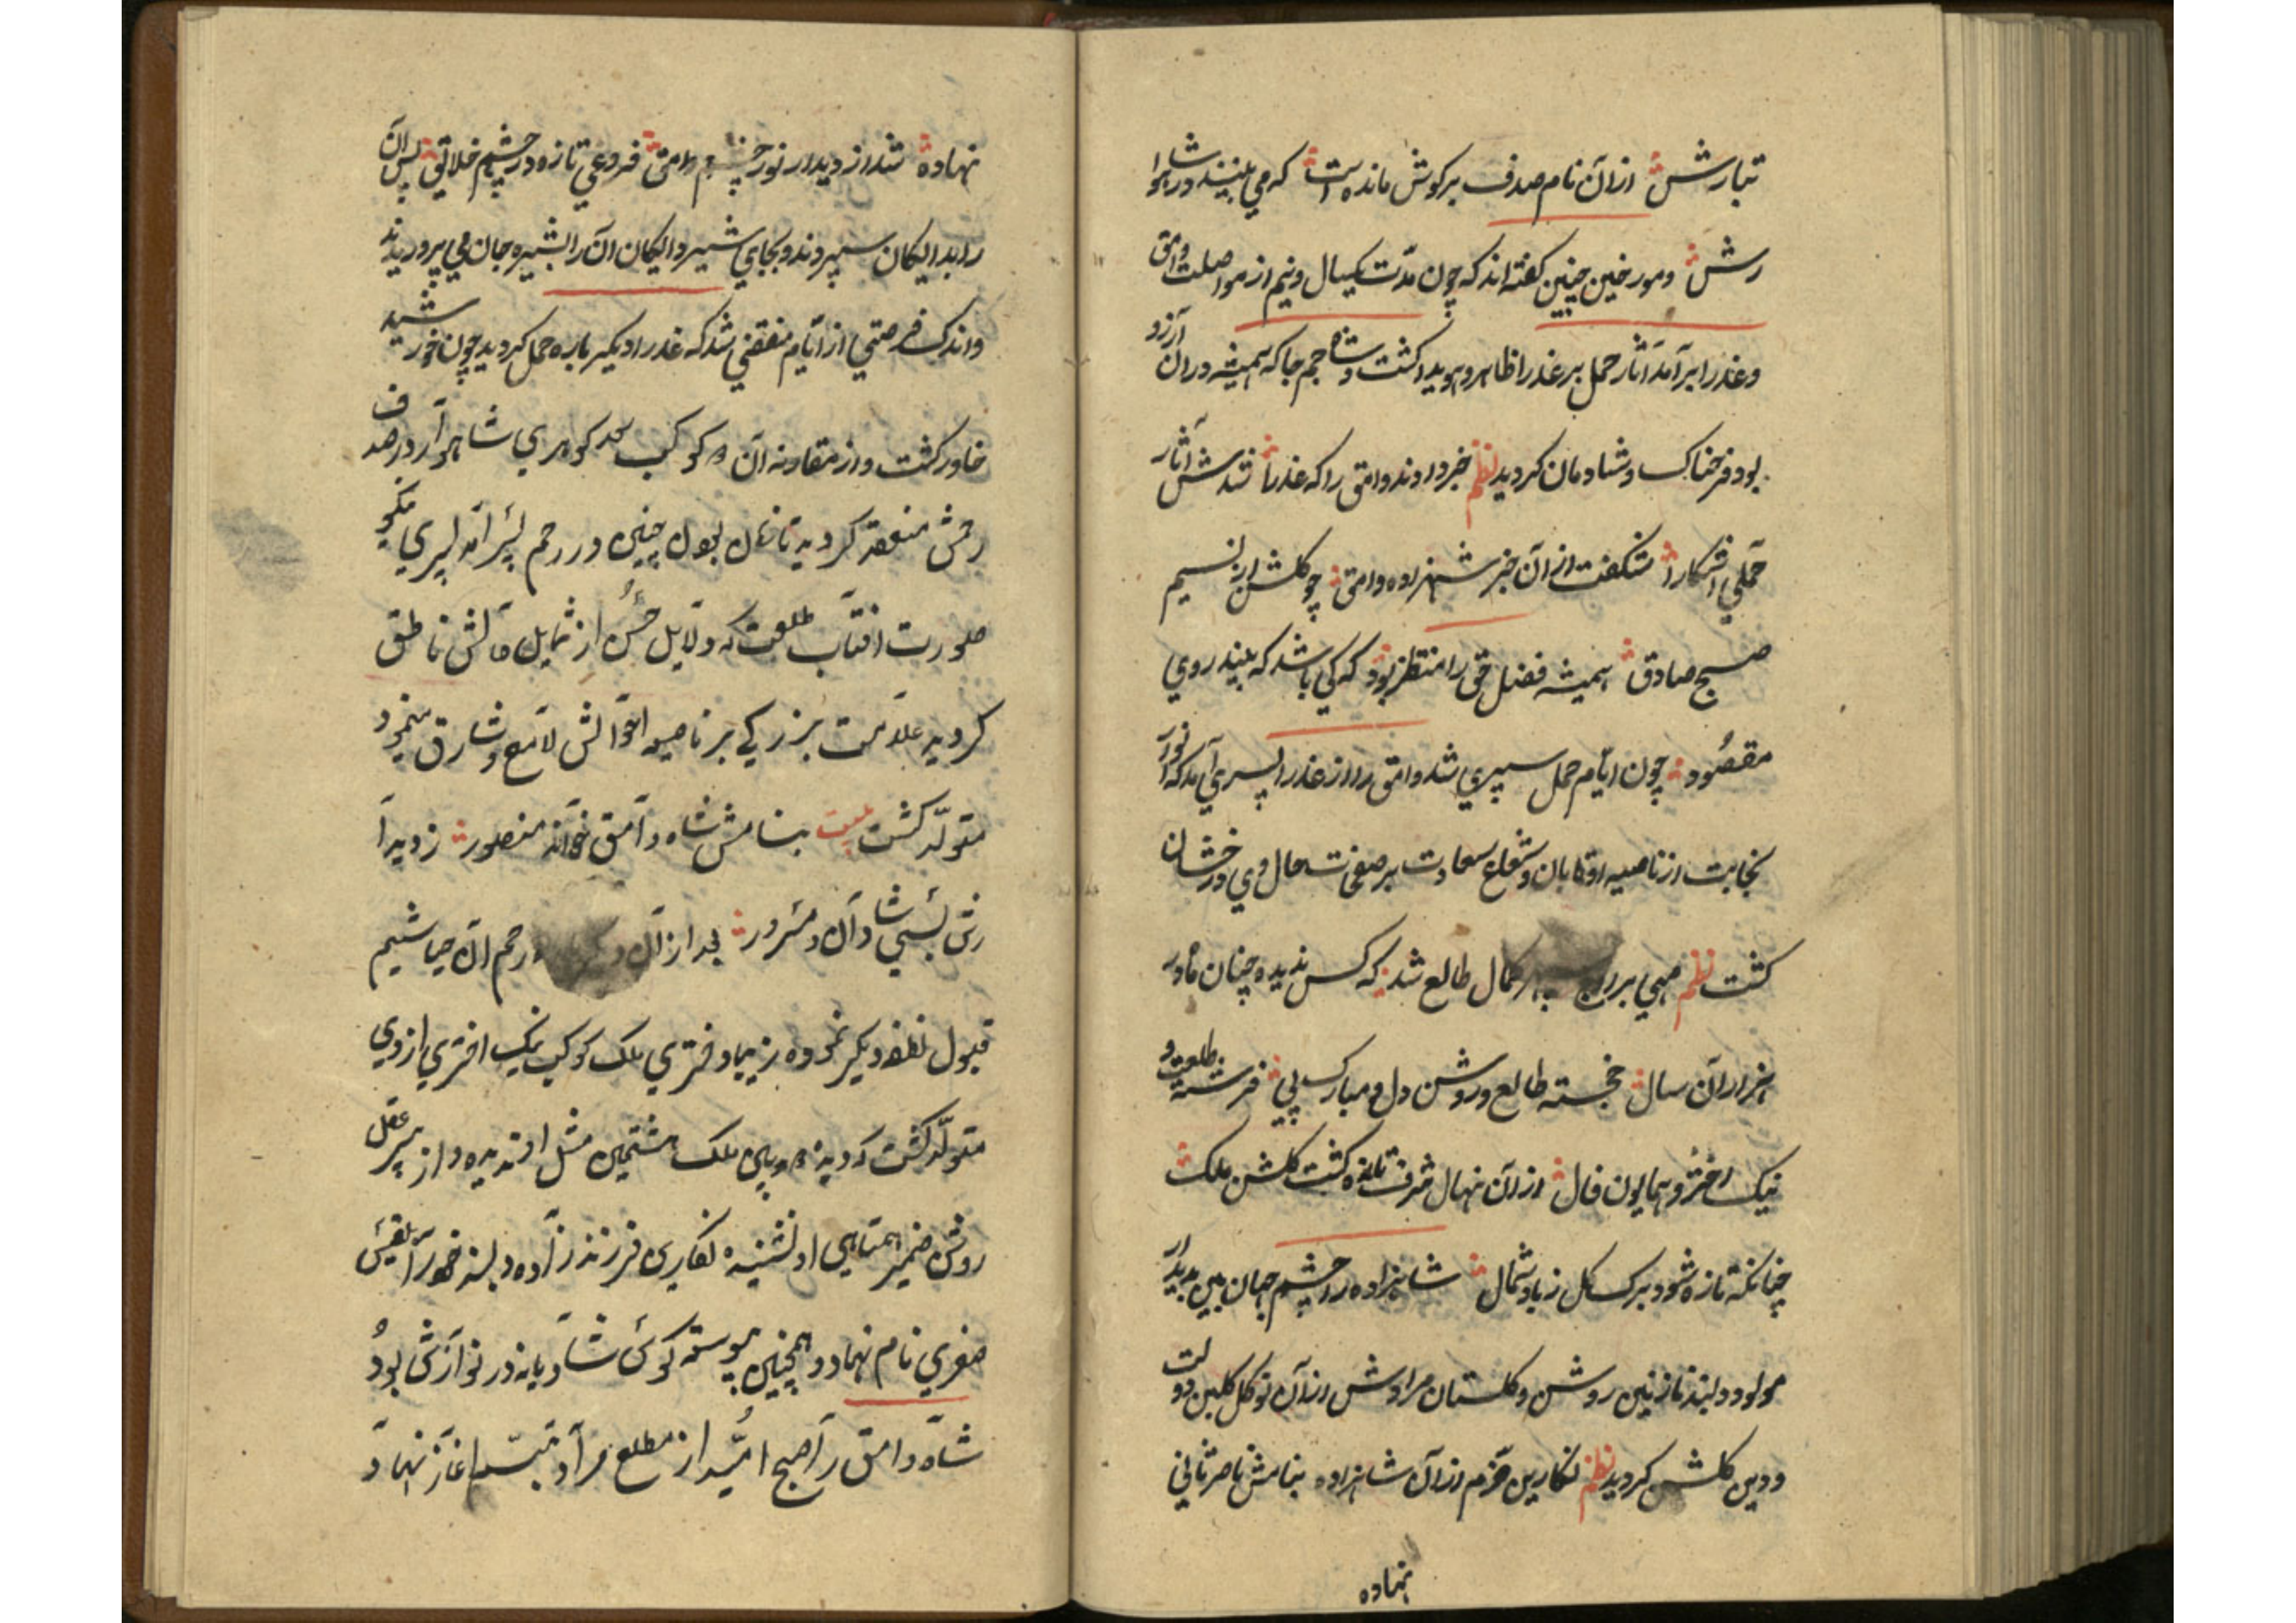 تبارش ازان نام صدف بر کوش مانده است که می بینند در شاهوا
رش و مورخین چنین کفته اند که چون مدت یکسال و نیم از مواصلت وامق
و عذرا برآمد آثار حمل بر عذرا ظاهر و هویدا کشت و شاه جم جا که همیشه در ان آرزو
بود فرحناک و شادمان کردید نظم خبر دادند وامق را که عذرا شدش آثار
حملی آشکارا شکفت از ان خبر شهزاده وامق چو کلشن از نسیم
صبح صادق همیشه فضل حق را منتظر بود که کی باشد که بیند روی
مقصود چون ایام حمل سپری شد وامق را از عذرا پسری آمد که انور
نجابت از ناصیه او تابان و شعاع سعادت بر صفحت حال وی درخشان
کشت نظم مهی بر کمال طالع شد که کس ندیده چنان مادر
آن سال خجسته طالع و روشن دل و مبارک پی فرشته طلعت و
نیک اختر و همایون فال ازان نهال شرف تازه کشت کلشن ملک
چنانکه تازه شود برک کل ز باد شمال شاهزاده را چشم جهان بین بدیدار
مولود دلبند نازنین روشن و کلستان مرادش ازان نوکل کلبن دولت
و دین کلشن کردید نظم نکارین خرم ازان شاهزاده بنامش ناصر ثانی
نهاده
نهاده شد از دیدار نور چشم وامق فروغی تازه در چشم خلایق پس آن
را بدایکان سپردند و بجای شیر دایکان آن را بشیره جان می پروریدند
و اندک فرصتی از ایام منقضی شد که عذرا دیکر باره حمل کردید چون خورشید
خاور کشت و از مقارنه آن کوکب کوهری شاهوار در صدف
رحمش منعقد کردید تا زمان چنین در رحم پسر آمد پسری نکو
صورت افتاب طلعت که دلایل حسن از شمایل ناطق
کردید علامت بزرکی بر ناصیه احوالش لامع و شارق مینمود
متولد کشت بیت بنامش شاه وامق خواند منصور ز دیدا
رش بسی شادان و مسرور بعد از آن رحم آن
قبول نطفه دیکر نموده زیبا دختری ملک کوکب نیک اختری از وی
متولد کشت که دیده ملک هشتمین مثل او ندیده و از پیر عقل
روشن ضمیر همتای او نشنیده نکارین فرزندزاده دلبند خود را بلقیس
صغری نام نهاد و همچنین پیوسته کوس شادیانه در نوازش بود
شاه وامق را صبح امید از مطلع مراد تبسم آغاز نهاد